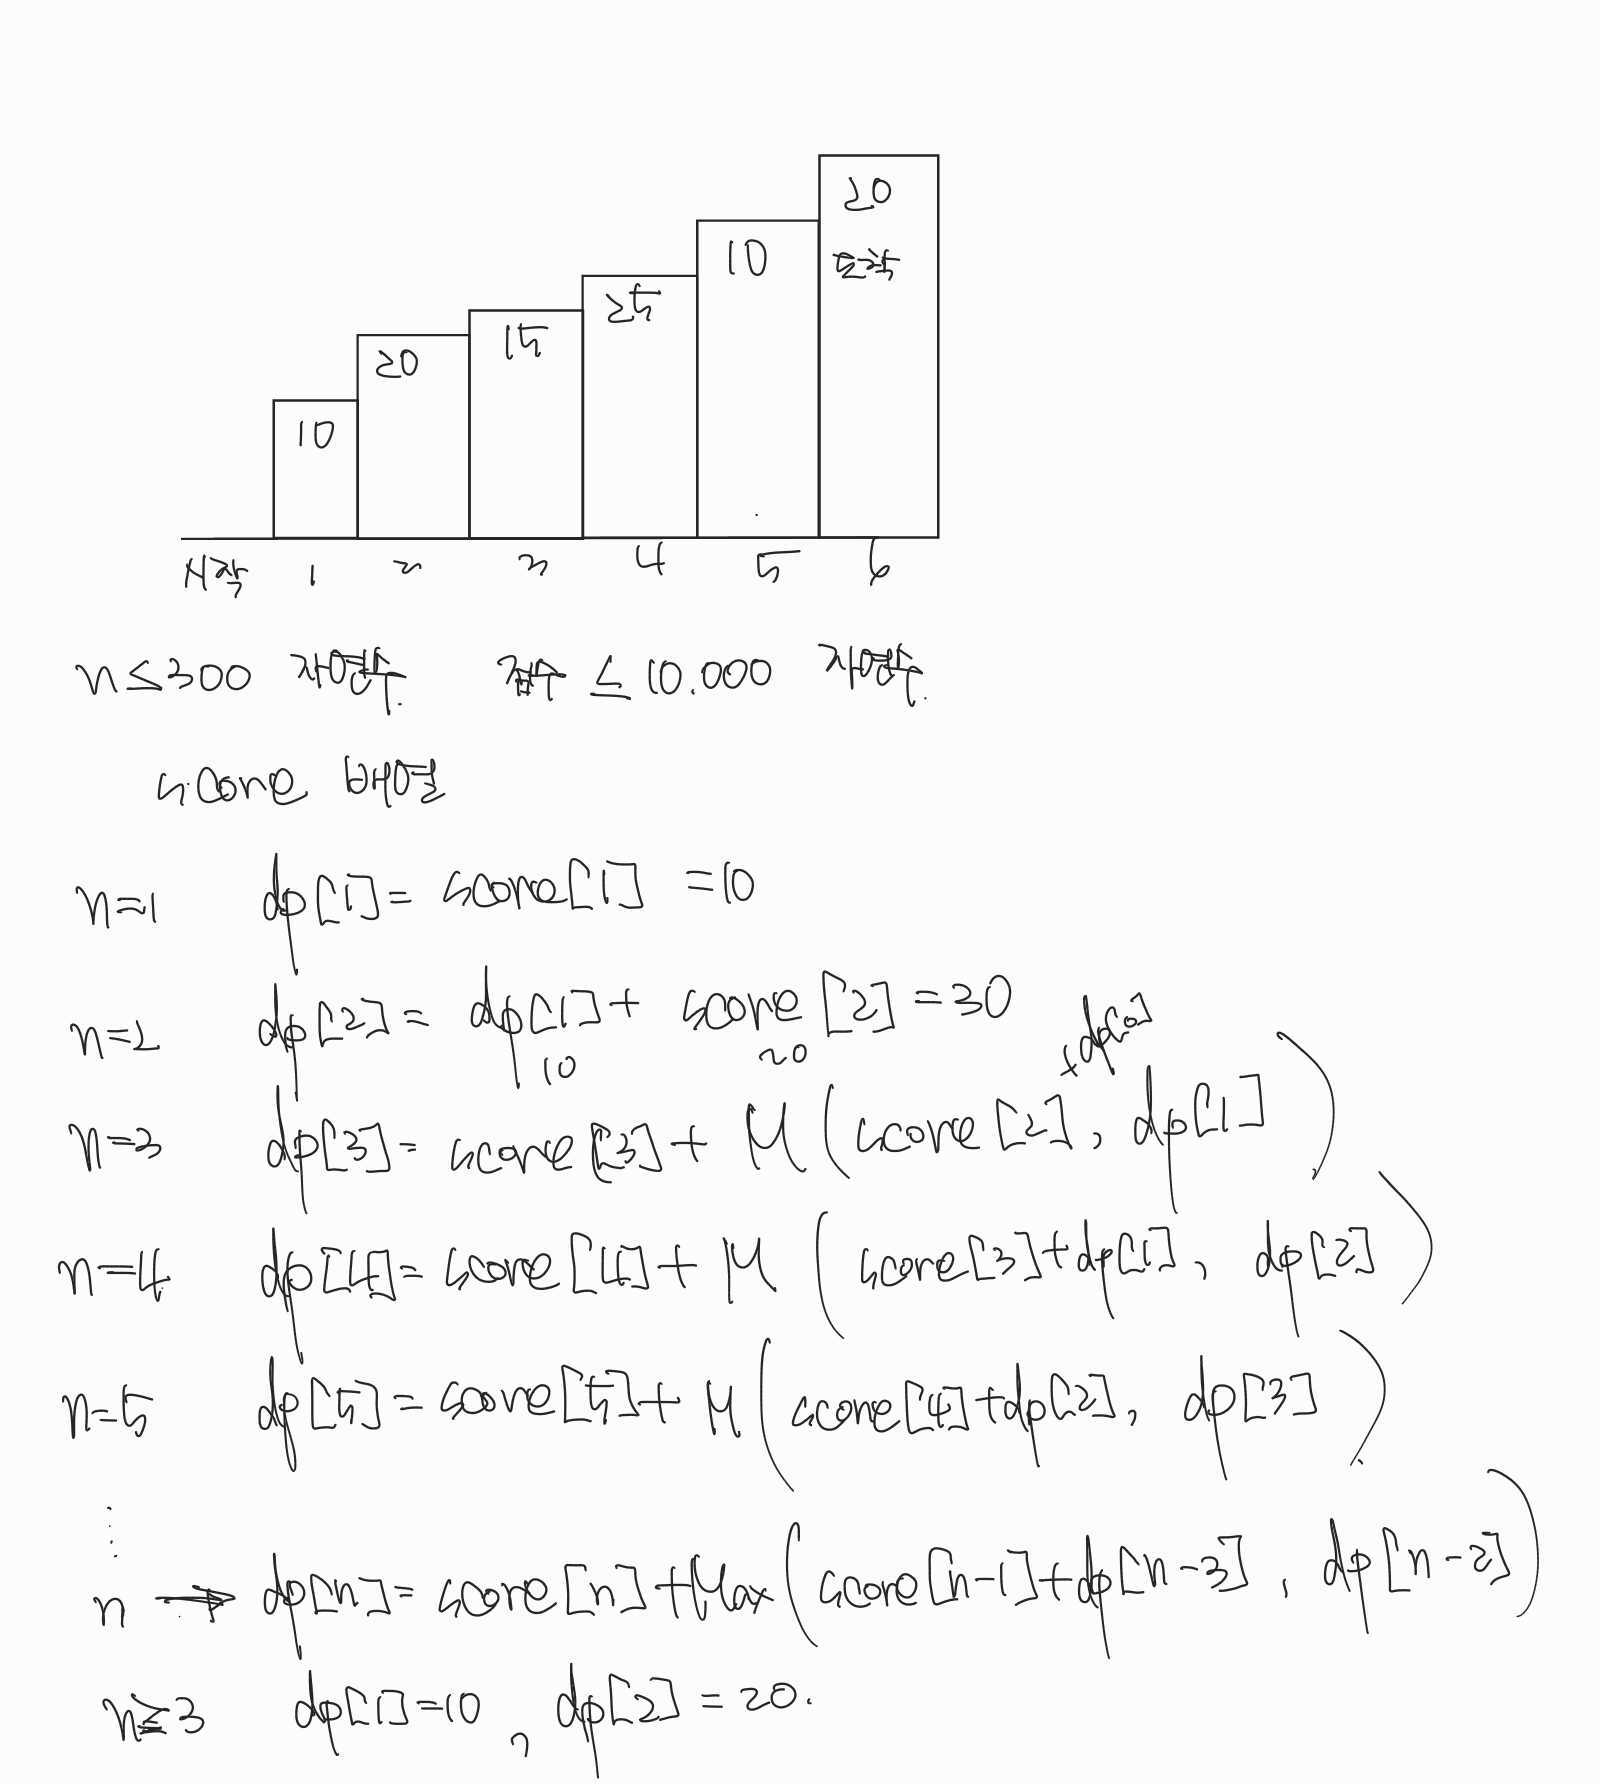 20
도착
10
25
15
20
10
시작 1 2 3 4 5 6
n ≤ 300 자연수. 점수 ≤ 10.000 자연수.
score 배열
n=1 dp[1] = score[1] = 10
n=2 dp[2] = dp[1] + score[2] = 30
10 20
+dp[0]
n=3 dp[3] = score[3] + M(score[2], dp[1])
n=4 dp[4] = score[4] + M(score[3]+dp[1], dp[2])
n=5 dp[5] = score[5] + M(score[4]+dp[2], dp[3])
⋮
n → dp[n] = score[n] + Max(score[n-1]+dp[n-3], dp[n-2])
n≥3 dp[1]=10, dp[2]=20.